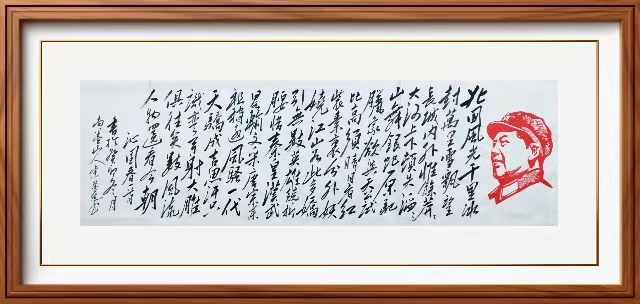 北国风光千里冰
封万里雪飘望
长城内外惟余莽莽
大河上下顿失滔滔
山舞银蛇原驰
腊象欲与天公试
比高须晴日看红
装素裹分外妖
娆江山如此多娇
引无数英雄竞折
腰惜秦皇汉武
略输文采唐宗宋
祖稍逊风骚一代
天骄成吉思汗只
识弯弓射大雕
俱往矣数风流
人物还看今朝
沁园春雪